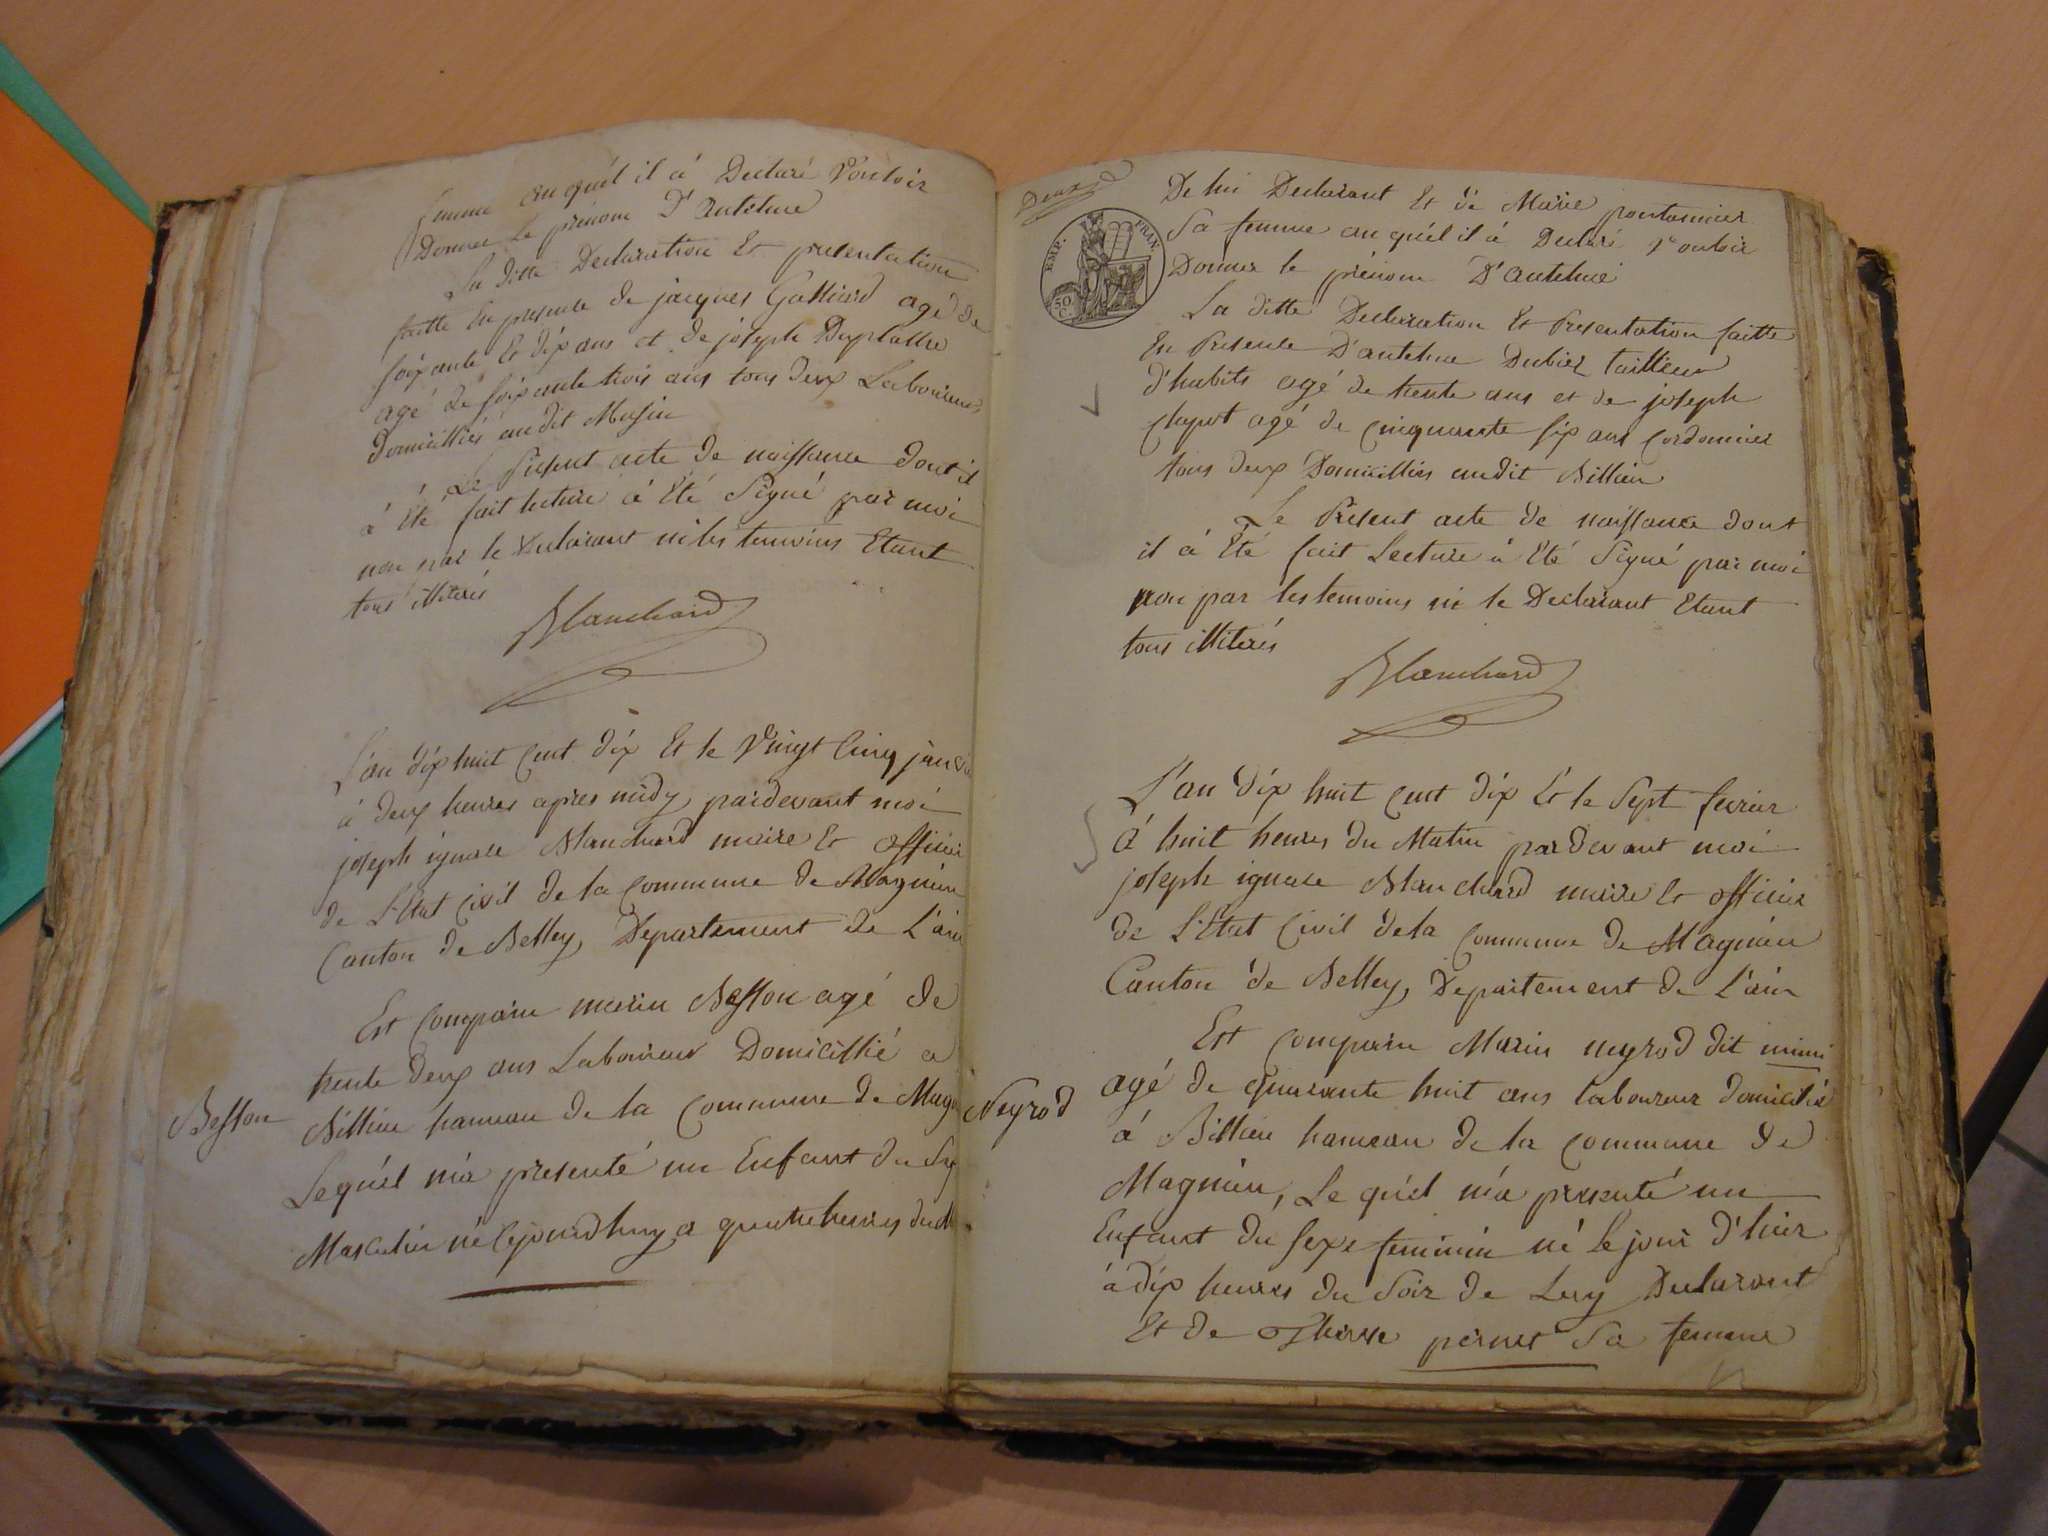 femme auquél il á Declaré Vouloir
Donner Le prénom D'antelme
La ditte Declaration Et presentation
faitte En presence de jacques Galliard agé de
soixante Et dix ans et de joseph Duplatre
agé de soixante trois ans tous deux Laboureurs
Domicilliés audit Musin
Le Présent acte de naissance dont il
á Eté fait lecture á Eté Signé par moi
non par le Declarant ni les temoins Etant
tous illiterés
Blanchard
L'an dix huit Cent dix Et le Vingt Cinq janvier
á deux heures apres midy pardevant moi
joseph ignace Blanchard maire Et officier
de L'Etat Civil de la Commune de Magnieu
Canton de Belley, Departement de L'ain
Est Comparu marin Besson agé de
trente deux ans Laboureur Domicillié a
Besson
Billieu hameau de la Commune de Mag
Lequél m'a presenté un Enfant du Sex
Masculin né Cejourdhuy a quatre heures du
Deux
EMP. FRAN.
50 C.
De lui Declarant Et de Marie pontannier
Sa femme auquél il á Declaré Vouloir
Donner le prénom D'antelme
La ditte Declaration Et Presentation faitte
En Presence D'antelme Dubiez tailleur
d'habits agé de trente ans et de joseph
Chapot agé de Cinquante six ans Cordonnier
tous deux Domicilliés audit Billieu
Le Présent acte de naissance dont
il á Eté fait Lecture á Eté Signé par moi
non par les temoins ni le Declarant Etant
tous illiterés
Blanchard
L'an dix huit Cent dix Et le Sept fevrier
á huit heures du Matin pardevant moi
joseph ignace Blanchard maire Et officier
de L'Etat Civil de la Commune de Magnieu
Canton de Belley, Departement de L'ain
Est Comparu Marin neyrod dit mimi
agé de quarante huit ans laboureur domicilié
Neyrod
á Billieu hameau de la Commune de
Magnieu, Le quél m'a presenté un
Enfant du Sexe feminin né Le jour d'hier
á dix heures du Soir de Luy Declarant
Et de Thérese pernet Sa femme